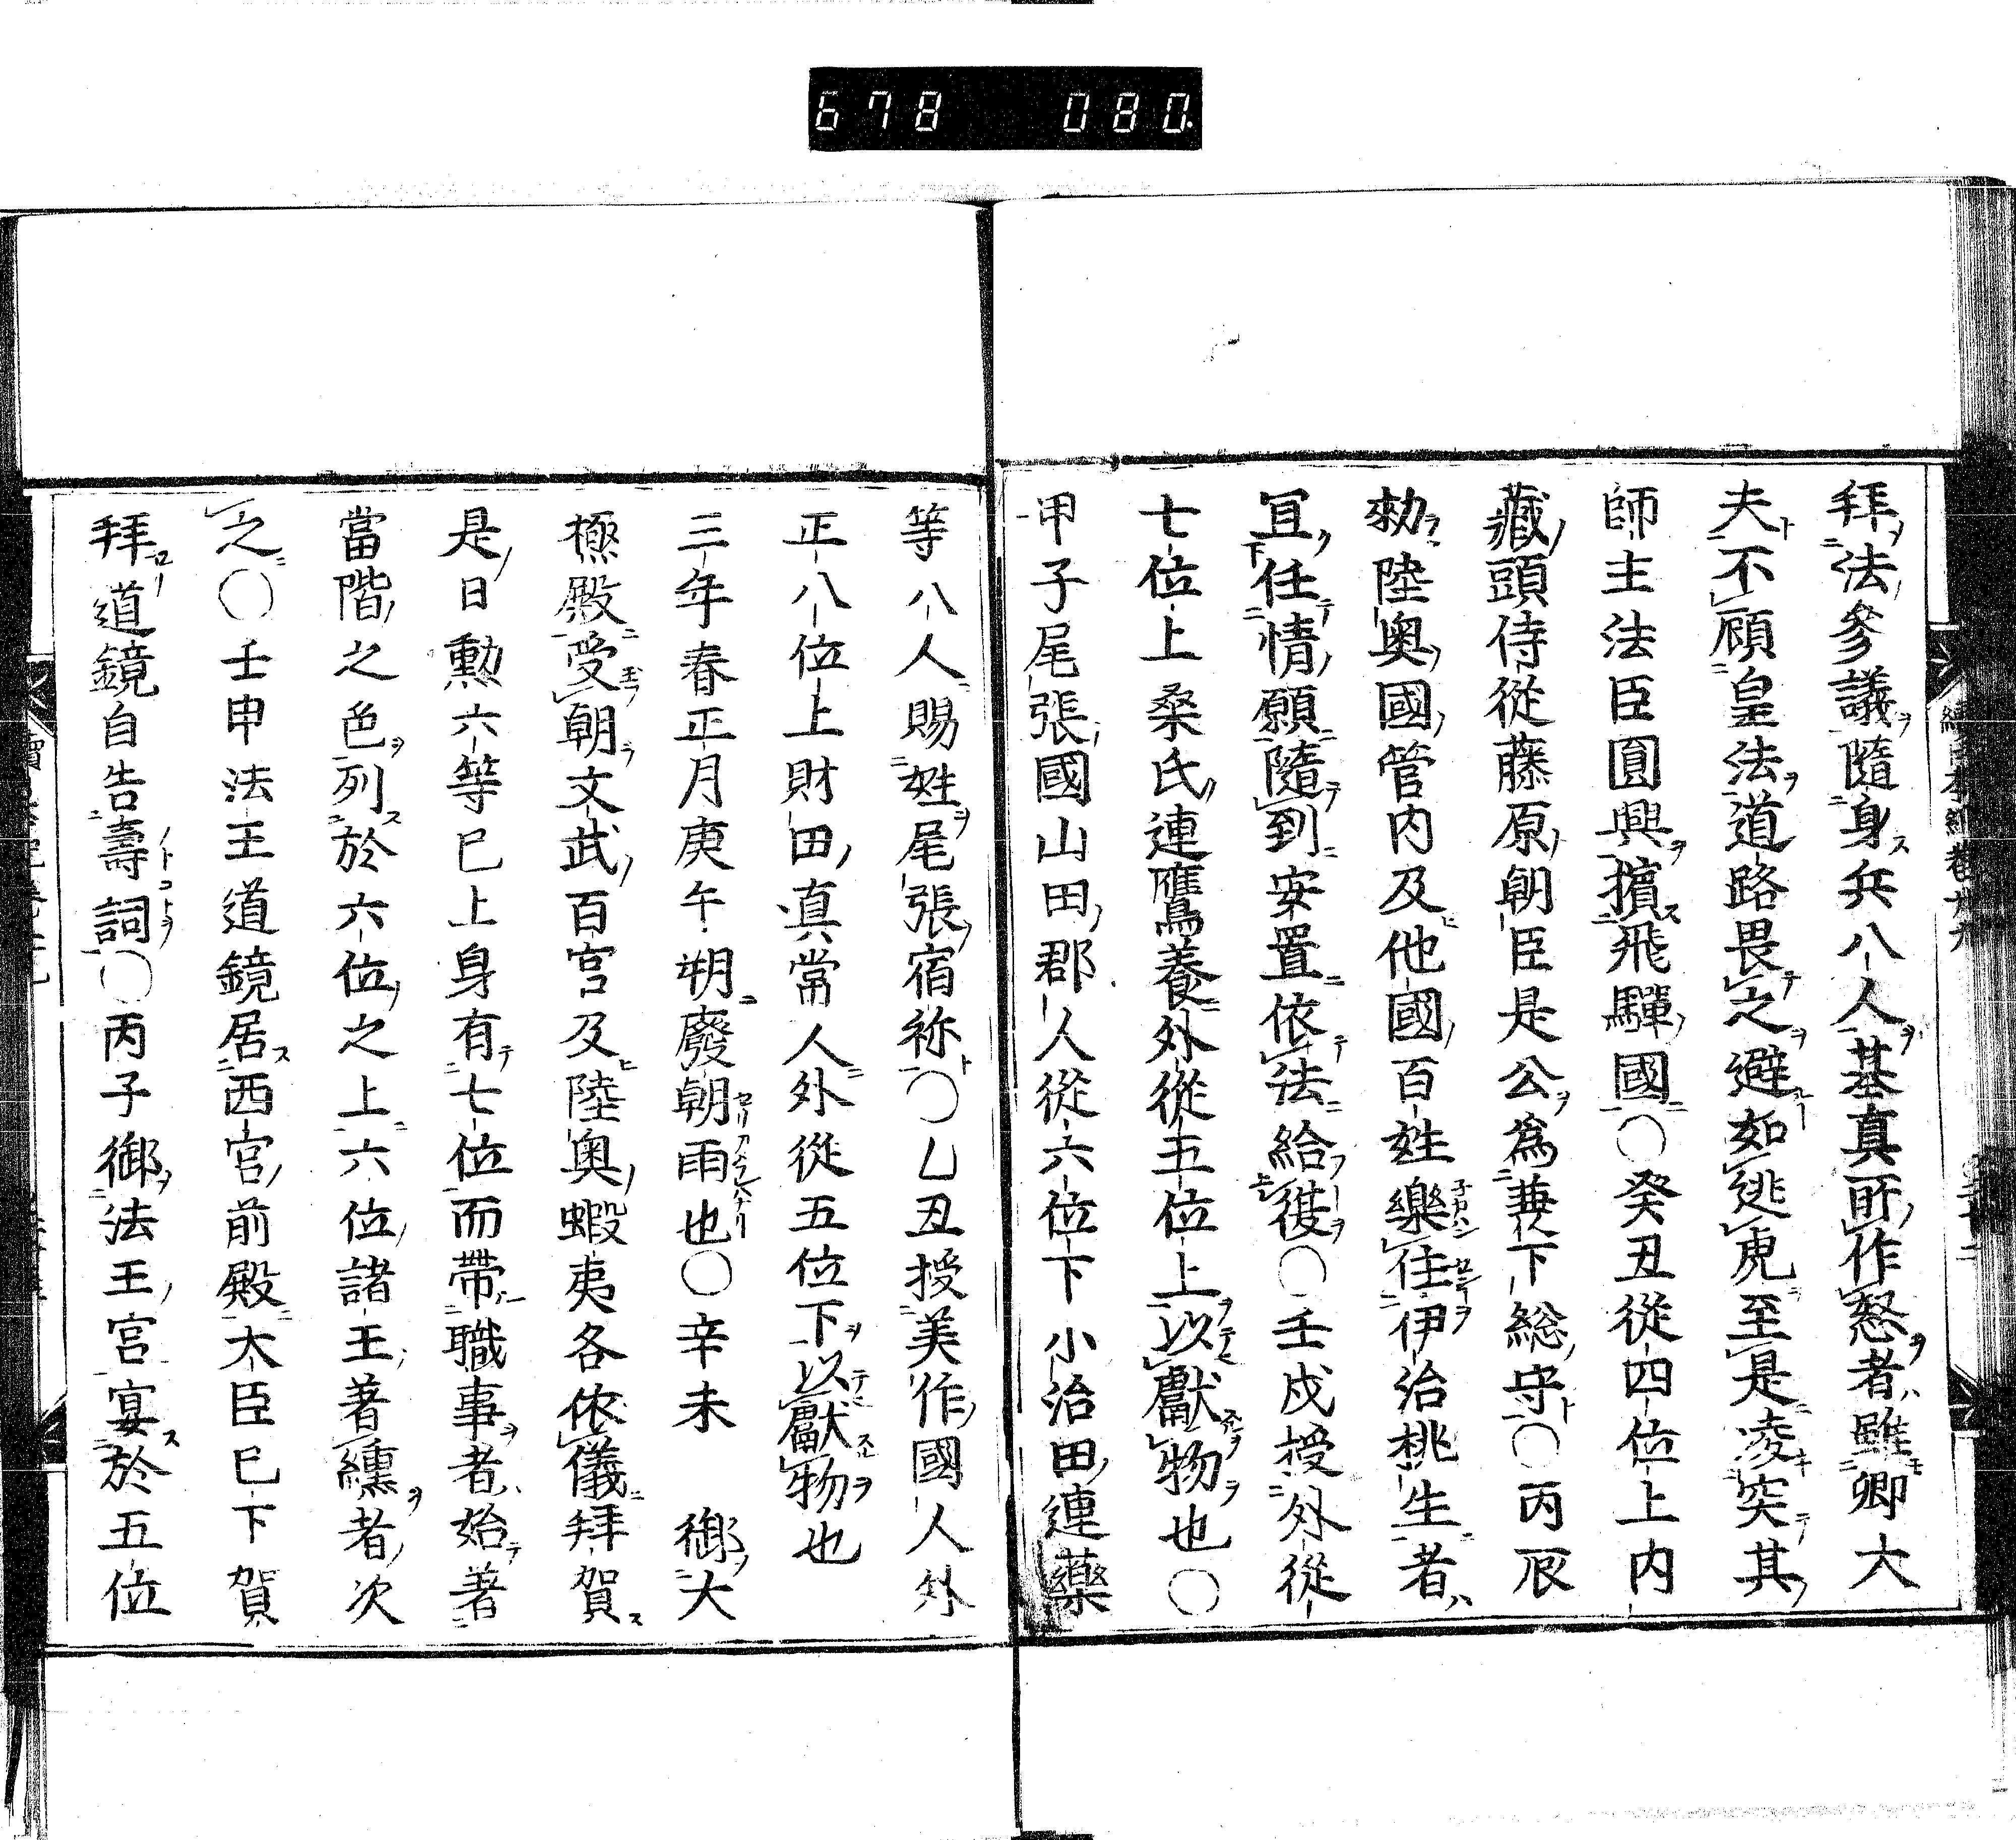 678 080.
拜法參議隨身兵八人基真所作怒者雖卿大
夫不顧皇法道路畏之避如逃虎至是凌突其
師主法臣圓興擯飛騨國〇癸丑從四位上內
藏頭侍從藤原朝臣是公爲兼下総守〇丙辰
勑陸奥國管内及他國百姓樂住伊治桃生者
冝任情願隨到安置依法給復〇壬戌授外從
七位上桑氏連鷹養外從五位上以獻物也〇
甲子尾張國山田郡人從六位下小治田連藥
等八人賜姓尾張宿祢〇乙丑授美作國人外
正八位上財田真常人外從五位下以獻物也
三年春正月庚午朔廢朝雨也〇辛未 御大
極殿受朝文武百官及陸奥蝦夷各依儀拜賀
是日勳六等已上身有七位而帶職事者始著
當階之色列於六位之上六位諸王著纁者次
之〇壬申法王道鏡居西宮前殿大臣已下賀
拜道鏡自告壽詞〇丙子御法王宮宴於五位